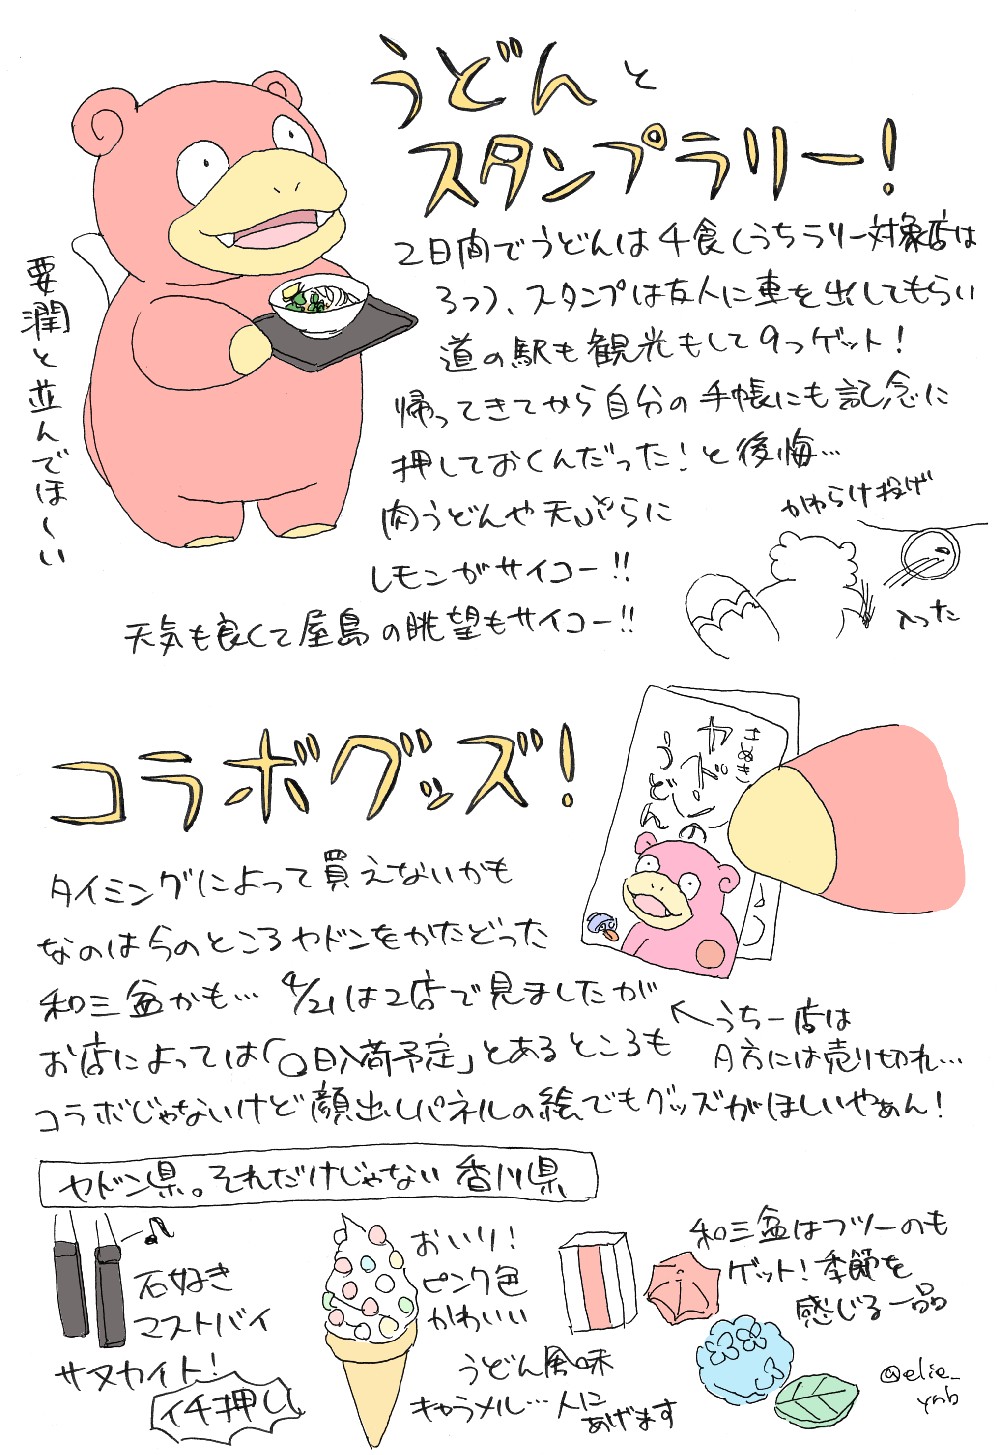 うどんと
スタンプラリー!
要潤と並んでほ〜い
2日間でうどんは4食(うちラリー対象店は
3つ)、スタンプは友人に車を出してもらい
道の駅も観光もして9つゲット!
帰ってきてから自分の手帳にも記念に
押しておくんだった!と後悔…
肉うどんや天ぷらに
レモンがサイコー!!
天気も良くて屋島の眺望もサイコー!!
かわらけ投げ
入った
コラボグッズ!
さぬき
ヤドンの
うどん
タイミングによって買えないかも
なのは今のところヤドンをかたどった
和三盆かも… 4/21は2店で見ましたが
お店によっては「〇日入荷予定」とあるところも
←うち一店は
夕方には売り切れ…
コラボじゃないけど顔出しパネルの絵でもグッズがほしいやぁん!
ヤドン県。それだけじゃない香川県
石好き
マストバイ
サヌカイト!
イチ押し
おいり!
ピンク色
かわいい
うどん風味
キャラメル…人に
あげます
和三盆はフツーのも
ゲット!季節を
感じる一品
@elie_
ynb